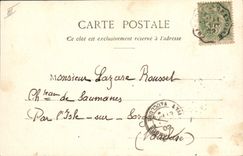 CARTE POSTALE
Ce côté est exclusivement réservé à l'adresse
Monsieur Lazare Rousset
Chteau de Saumanes
Par l'Isle sur Sorgue
Vaucluse